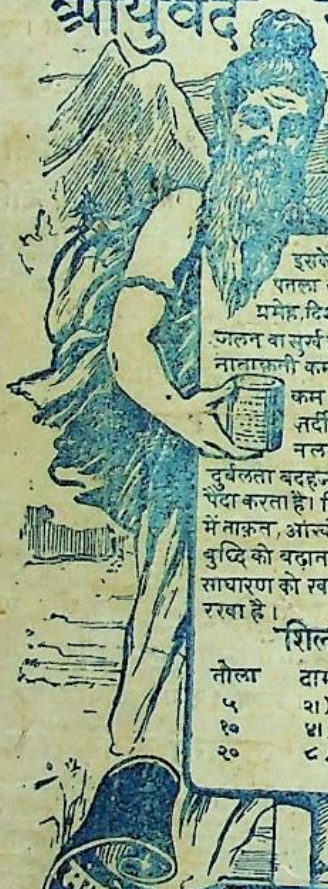 आयुर्वेद
इसके
पतला
प्रमेह, दि
जलन वा सुर्ख
नाताक़ती कम
कम
ज़र्दी
नल
दुर्बलता बदहज
पैदा करता है।
में ताक़त, आंख
बुध्दि को बढ़ान
साधारण को रव
रखा है।
शिल
तोला दाम
५ २1)
१० ४1
२० ८